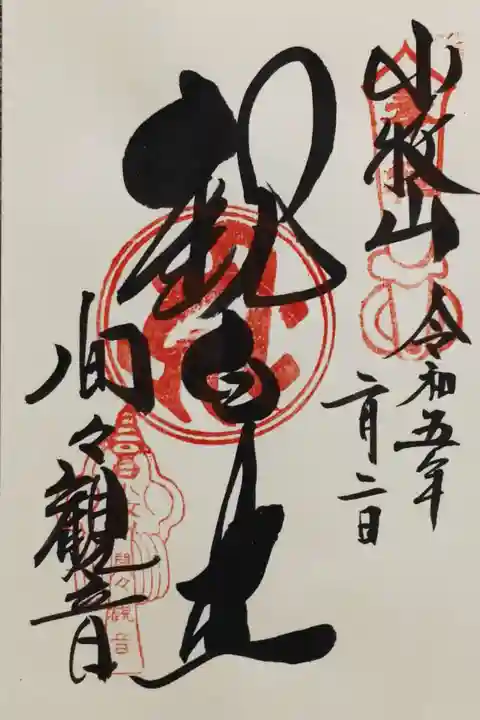 小牧山
令和五年
二月二日
観自在
間々観音
間々観音